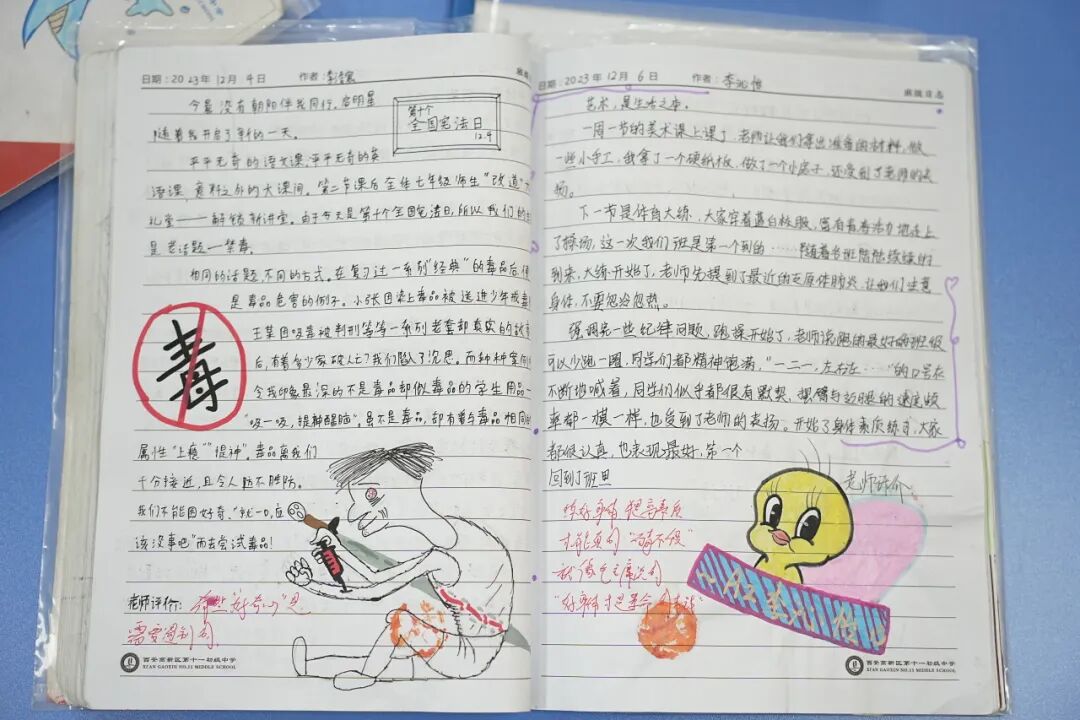 日期:2023年12月4日 作者:李
今晨没有朝阳伴我同行,启明星
随着我开启了新的一天。
第十个
全国宪法日
12.4
平平无奇的语文课,平平无奇的英
语课,意料之外的大课间。第二节课后全体七年级师生“改道”
礼堂——解锁新讲堂。由于今天是第十个全国宪法日,所以我们的
是老话题—禁毒。
相同的话题,不同的方式。在复习过一系列“经典”的毒品后,
是毒品危害的例子。小张因染上毒品被送进少年戒毒
王某因吸毒被判刑等等一系列老套却真实的
后,有着多少家破人亡?我们陷入了沉思。而种种案例
令我印象最深的不是毒品却似毒品的学生用品—
“吸一吸,提神醒脑”。虽不是毒品,却有着与毒品相同的
属性“上瘾”“提神”。毒品离我们
十分接近,且令人防不胜防。
我们不能因好奇、“就一口,应
该没事吧”而去尝试毒品!
毒
老师评价:有些“好奇心”是
需要遏制的
西安高新区第十一初级中学
XIAN GAOXIN NO.11 MIDDLE SCHOOL
日期:2023年12月6日 作者:李 班级日志
艺术,是生活之本。
一周一节的美术课上课了,老师让我们拿出准备的材料,做
一些小手工,我拿了一个硬纸板,做了一个小房子,还受到了老师的表
扬。
下一节是体育大练,大家穿着蓝白校服,富有青春活力地走上
了操场,这一次我们班是第一个到的……随着各班陆陆续续的
到来,大练开始了,老师先提到了最近的支原体肺炎,让我们注意
身体,不要忽冷忽热。
强调完一些纪律问题,跑操开始了,老师说跑的最好的班级
可以少跑一圈,同学们都精神饱满,“一二一,左右左……”的口号在
不断地喊着,同学们似乎都很有默契,摆臂与迈腿的速度频
率都一模一样,也受到了老师的表扬。开始了身体素质练习,大家
都很认真,也表现最好,第一个
回到了班里
老师评价:
练好身体 提高素质
才能
“好身体才是革命的本钱”
西安高新区第十一初级中学
XIAN GAOXIN NO.11 MIDDLE SCHOOL